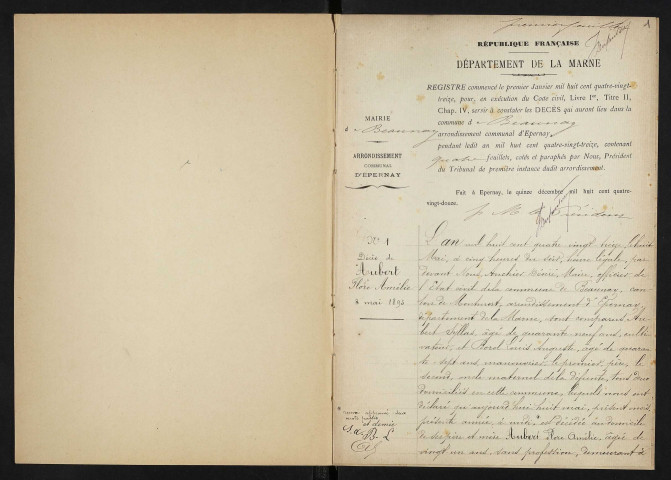 1
RÉPUBLIQUE FRANÇAISE
DÉPARTEMENT DE LA MARNE
REGISTRE commencé le premier Janvier mil huit cent quatre-vingt-
treize, pour, en exécution du Code civil, Livre Ier, Titre II,
Chap. IV, servir à constater les DÉCÈS qui auront lieu dans la
commune d Beaunay
arrondissement communal d'Epernay,
pendant ledit an mil huit cent quatre-vingt-treize, contenant
quatre feuillets, cotés et paraphés par Nous, Président
du Tribunal de première instance dudit arrondissement.
Fait à Epernay, le quinze décembre mil huit cent quatre-
vingt-douze.
MAIRIE
d Beaunay
ARRONDISSEMENT
COMMUNAL
D'EPERNAY
No 1
Décès de
Aubert
Flore Amélie
8 mai 1893
L'an mil huit cent quatre vingt treize, le huit
Mai, à cinq heures du soir, heure légale, par
devant Nous, Maire, officier de
l'Etat civil de la commune de Beaunay, can-
ton de Montmort, arrondissement d'Epernay,
département de la Marne, sont comparus Au-
bert âgé de quarante neuf ans, culti-
vateur, et Louis Auguste, âgé de quaran-
te sept ans, le premier, père, le
second, oncle maternel de la défunte, tous deux
domiciliés en cette commune, lesquels nous ont
déclaré qu'aujourd'hui huit mai, présent mois,
présente année, à midi, est décédée au domicile
de ses père et mère Aubert Flore Amélie, âgée de
vingt un ans, sans profession, demeurant à